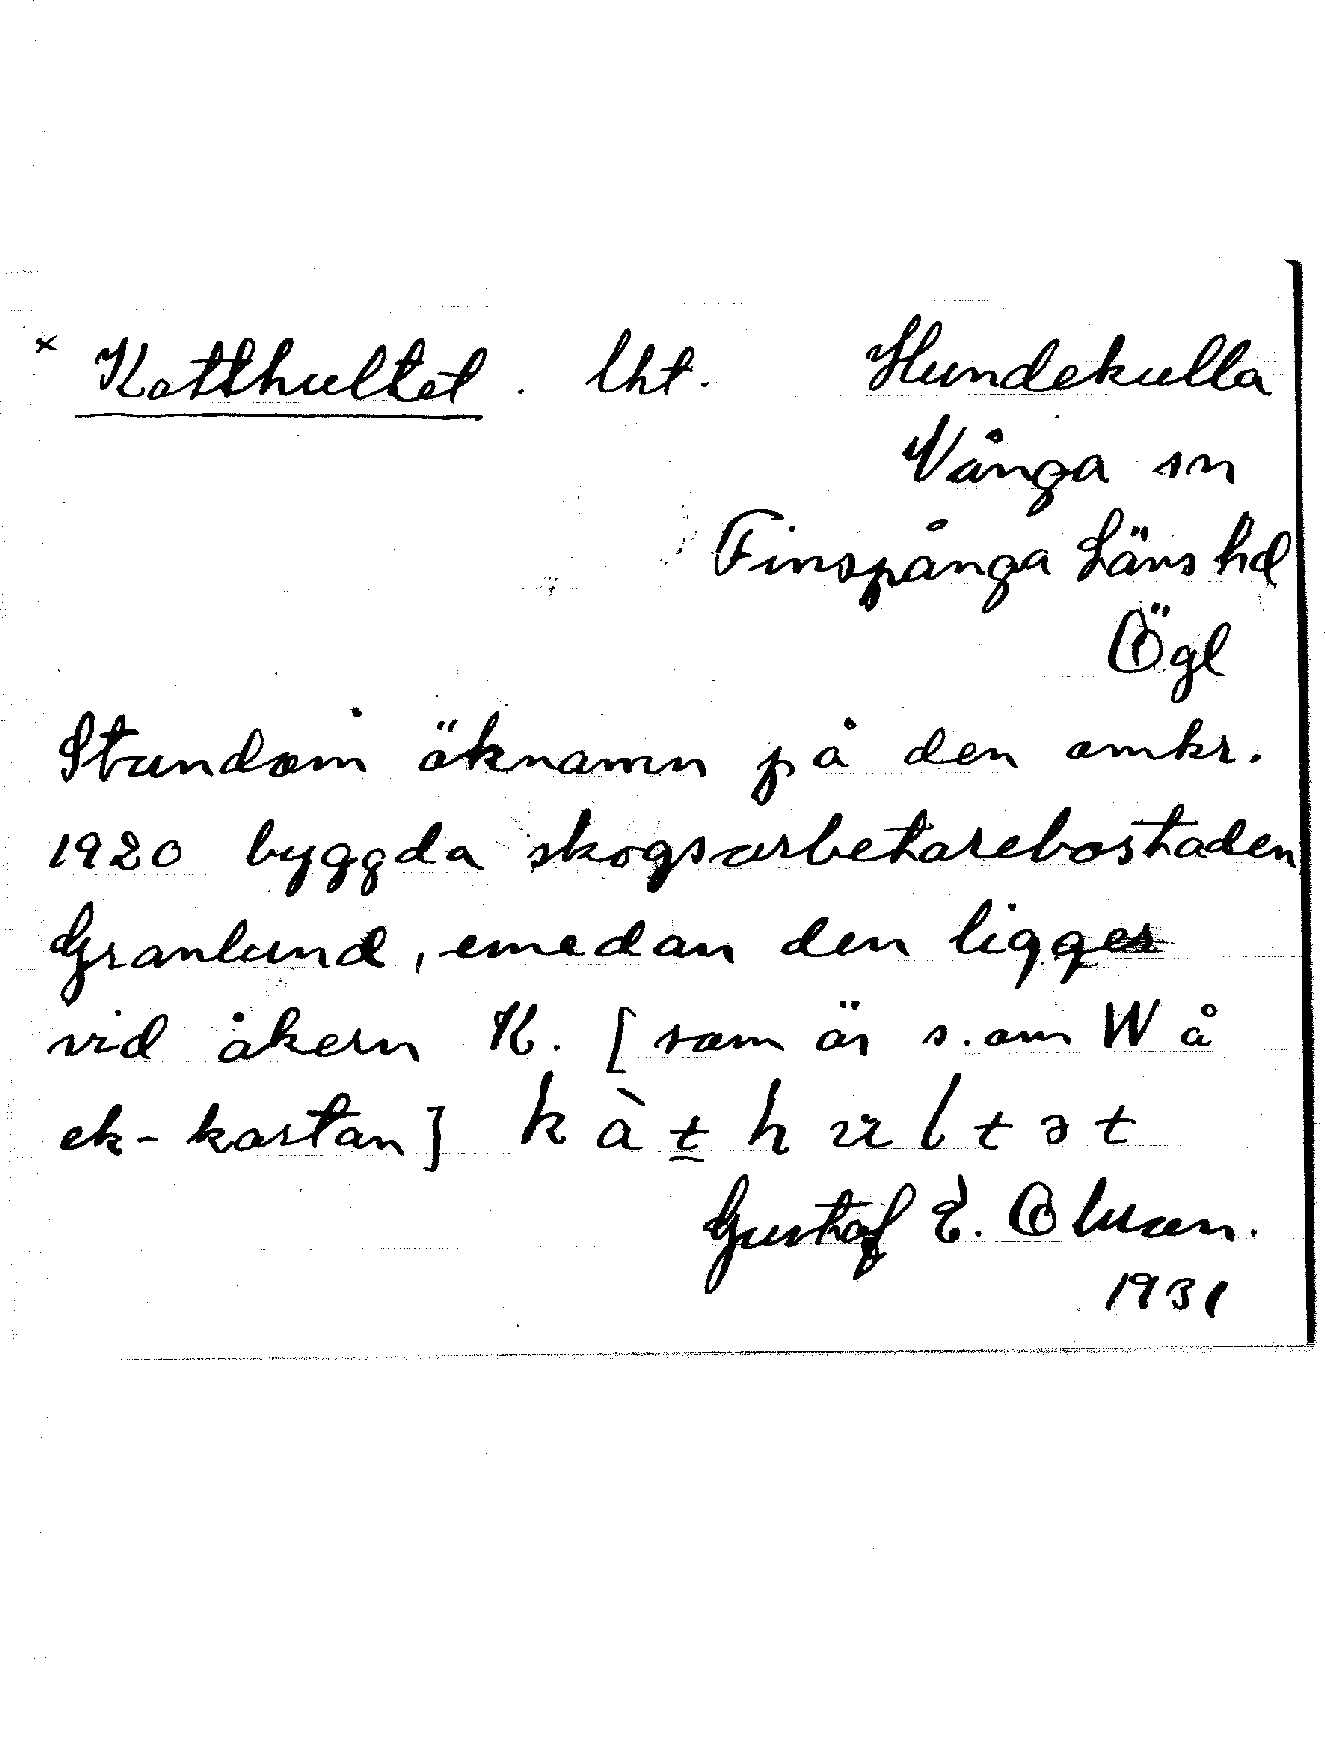 × Katthultet. lht. Hundekulla
Vånga sn
Finspånga Läns hd
Ögl
Stundom öknamn på den omkr.
1920 byggda skogsarbetarebostaden
Granlund, emedan den ligger
vid åkern K. [som är s. om W å
ek-kartan] kàt̲hultət
Gustaf E. Olsson.
1931